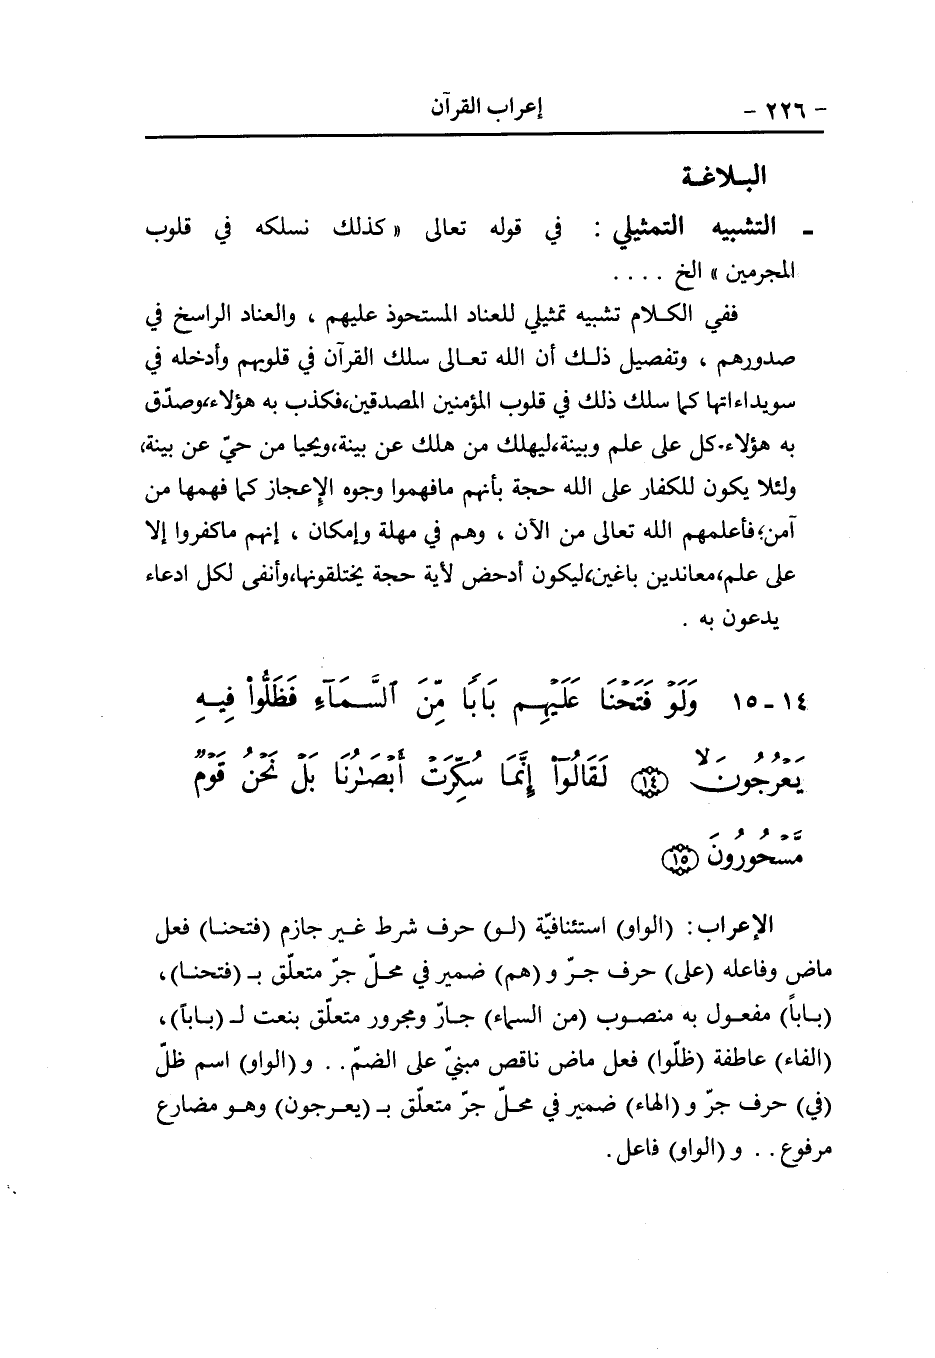 - ٢٢٦ - إعراب القرآن
البـلاغـة
ـ التشبيه التمثيلي : في قوله تعالى « كذلك نسلكه في قلوب
المجرمين » الخ . . . .
ففي الكـلام تشبيه تمثيلي للعناد المستحوذ عليهم ، والعناد الراسخ في
صدورهم ، وتفصيل ذلـك أن الله تعـالى سلك القرآن في قلوبهم وأدخله في
سويداءاتها كما سلك ذلك في قلوب المؤمنين المصدقين،فكذب به هؤلاء،وصدّق
به هؤلاء.كل على علم وبينة،ليهلك من هلك عن بينة،ويحيا من حيّ عن بينة،
ولئلا يكون للكفار على الله حجة بأنهم مافهموا وجوه الإعجاز كما فهمها من
آمن؛فأعلمهم الله تعالى من الآن ، وهم في مهلة وإمكان ، إنهم ماكفروا إلا
على علم،معاندين باغين،ليكون أدحض لأية حجة يختلقونها،وأنفى لكل ادعاء
يدعون به .
١٤ - ١٥ وَلَوْ فَتَحْنَا عَلَيْهِم بَابًا مِّنَ ٱلسَّمَآءِ فَظَلُّوا۟ فِيهِ
يَعْرُجُونَ ﴿١٤﴾ لَقَالُوٓا۟ إِنَّمَا سُكِّرَتْ أَبْصَٰرُنَا بَلْ نَحْنُ قَوْمٌ
مَّسْحُورُونَ ﴿١٥﴾
الإعراب: (الواو) استئنافيّة (لـو) حرف شرط غـير جازم (فتحنـا) فعل
ماض وفاعله (على) حرف جـرّ و (هم) ضمير في محـلّ جرّ متعلّق بـ (فتحنـا)،
(بـاباً) مفعـول به منصـوب (من السماء) جـارّ ومجرور متعلّق بنعت لـ (بـاباً)،
(الفاء) عاطفة (ظلّوا) فعل ماض ناقص مبنيّ على الضمّ. . و (الواو) اسم ظلّ
(في) حرف جرّ و (الهاء) ضمير في محـلّ جرّ متعلّق بـ (يعـرجون) وهـو مضارع
مرفوع . . و (الواو) فاعل.